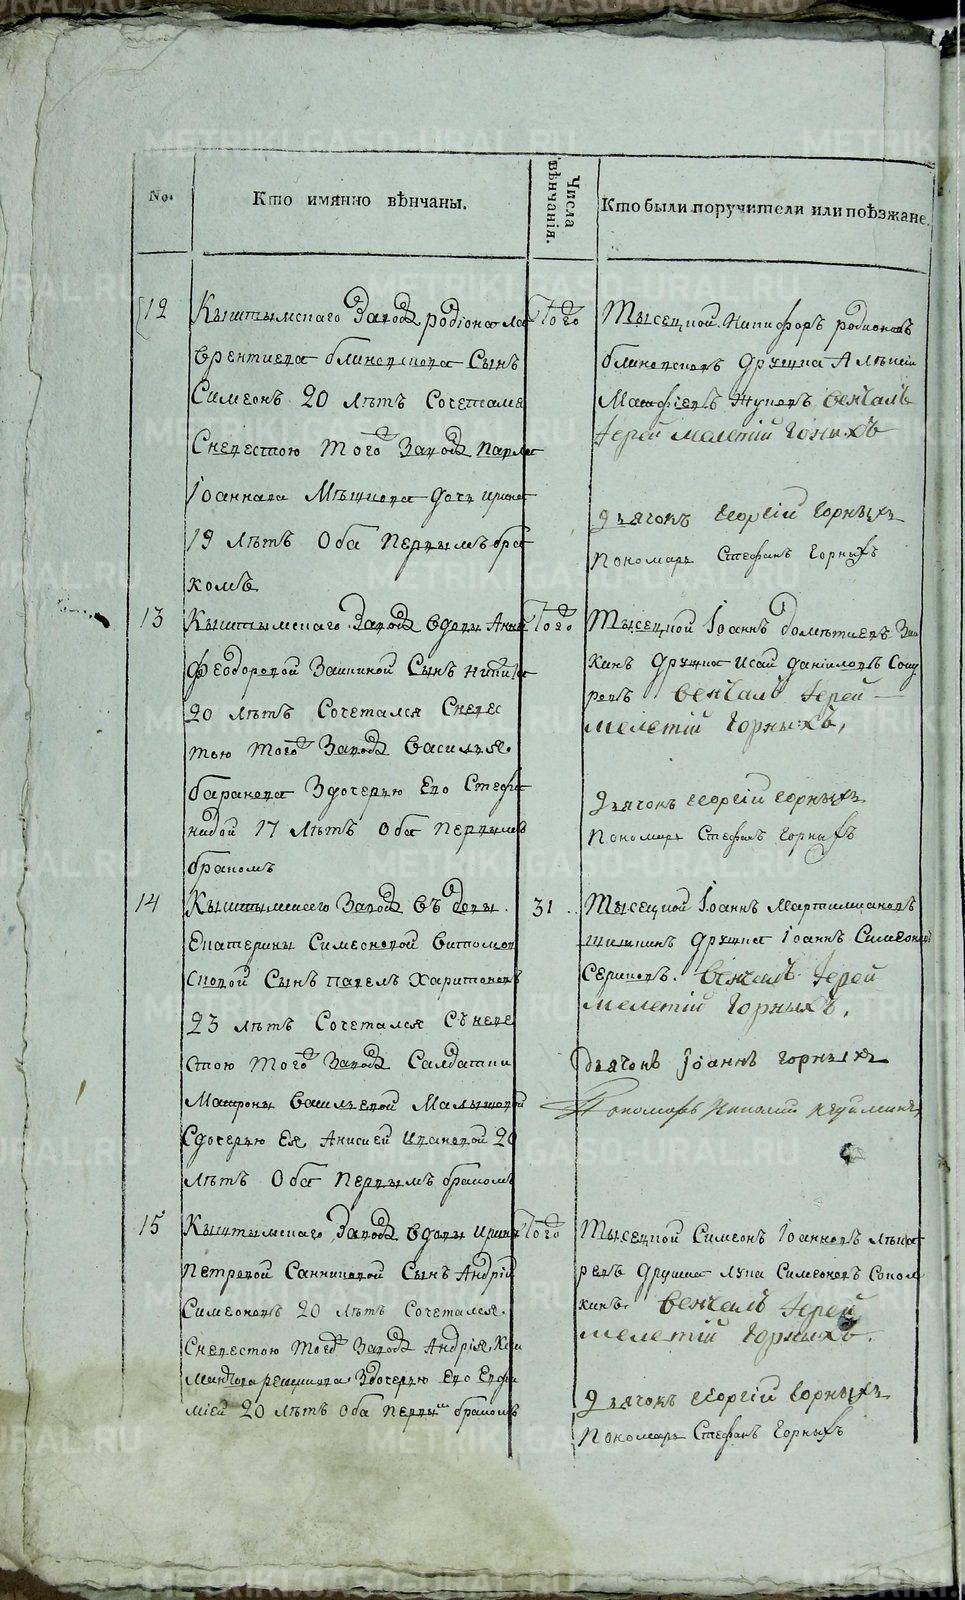 No.
Кто имянно вѣнчаны.
Числа вѣнчанія.
Кто были поручители или поѣзжане.
12
Кыштымскаго Завода родіона ла
врентиева блиновскова Сынъ
Симеонъ 20 лѣтъ Сочетался
Сневестою того Завода Павла
Іоаннава дочь ирина
19 лѣтъ Оба Первымъ бра
комъ
Того
Тысецкой Никифоръ родионовъ
блиновсковъ Дружка Алѣксѣй
венчалъ
Іерей мелетій Горныхъ
Дьячокъ Георгій Горныхъ
Пономарь Стефанъ Горныхъ
13
Кыштымскаго Завода вдовы Анны
Феодоровой Заикиной Сынъ никита
20 лѣтъ Сочетался Сневес
тою того Завода василья
баранова Здочерью Его Стефа
нидой 17 лѣтъ Оба Первымъ
бракомъ
Того
Тысецкой Іоаннъ домѣтиевъ Заи
кинъ Дружка Исай даніиловъ
венчалъ Іерей
мелетій Горныхъ,
Дьячокъ Георгій Горныхъ
Пономарь Стефанъ Горныхъ
14
Кыштымскаго Завода въдовы
Екатерины Симеоновой
Сынъ павелъ Харитоновъ
23 лѣтъ Сочетался Съневе
стою того Завода Салдатки
Матроны васильевой Малышевой
Сдочерью Ея Анисией Ивановой 20
лѣтъ Оба Первымъ бракомъ
31
Тысецкой Іоаннъ Мартимиановъ
Дружка Іоаннъ Симеоновъ
венчалъ Іерей
мелетій Горныхъ.
Дьячокъ Іоаннъ горныхъ
Пономарь
15
Кыштымскаго Завода вдовы ирины
Петровой Санниковой Сынъ Андрій
Симеоновъ 20 лѣтъ Сочетался
Сневестою того Завода Андрія
Здочерью Его Евфи
міей 20 лѣтъ Оба Первым бракомъ
Того
Тысецкой Симеонъ Іоанновъ лѣка
ревъ Дружка лука Симеоновъ
венчалъ Іерей
мелетій Горныхъ.
Дьячокъ Георгій Горныхъ
Пономарь Стефанъ Горныхъ
METRIKI.GASO-URAL.RU